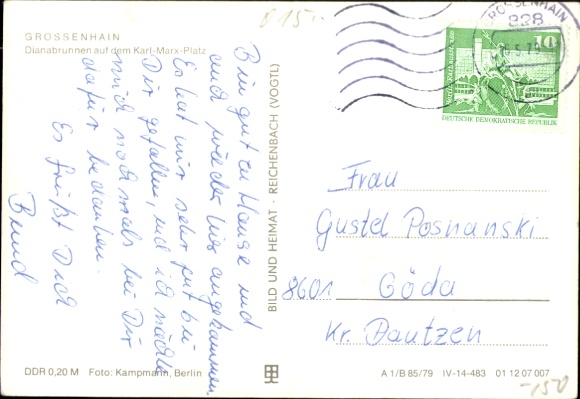 8 15,-
GROSSENHAIN
Dianabrunnen auf dem Karl-Marx-Platz
Bin gut zu Hause und
und wieder hier angekommen.
Es hat mir sehr gut bei
Dir gefallen, und ich möchte
mich nochmals bei Dir
dafür bedanken.
Es grüßt Dich
Bernd
DDR 0,20 M Foto: Kampmann, Berlin
BILD UND HEIMAT · REICHENBACH (VOGTL)
GROSSENHAIN
828
10
DEUTSCHE DEMOKRATISCHE REPUBLIK
Frau
Gustel Posnanski
8601 Göda
Kr. Bautzen
A 1/B 85/79 IV-14-483 01 12 07 007
-150